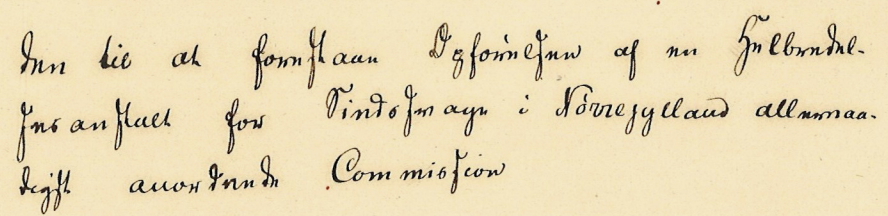 den til at forestaae Opførelsen af en Helbredel-
sesanstalt for Sindssvage i Nörrejylland allernaa-
digst anordnede Commission